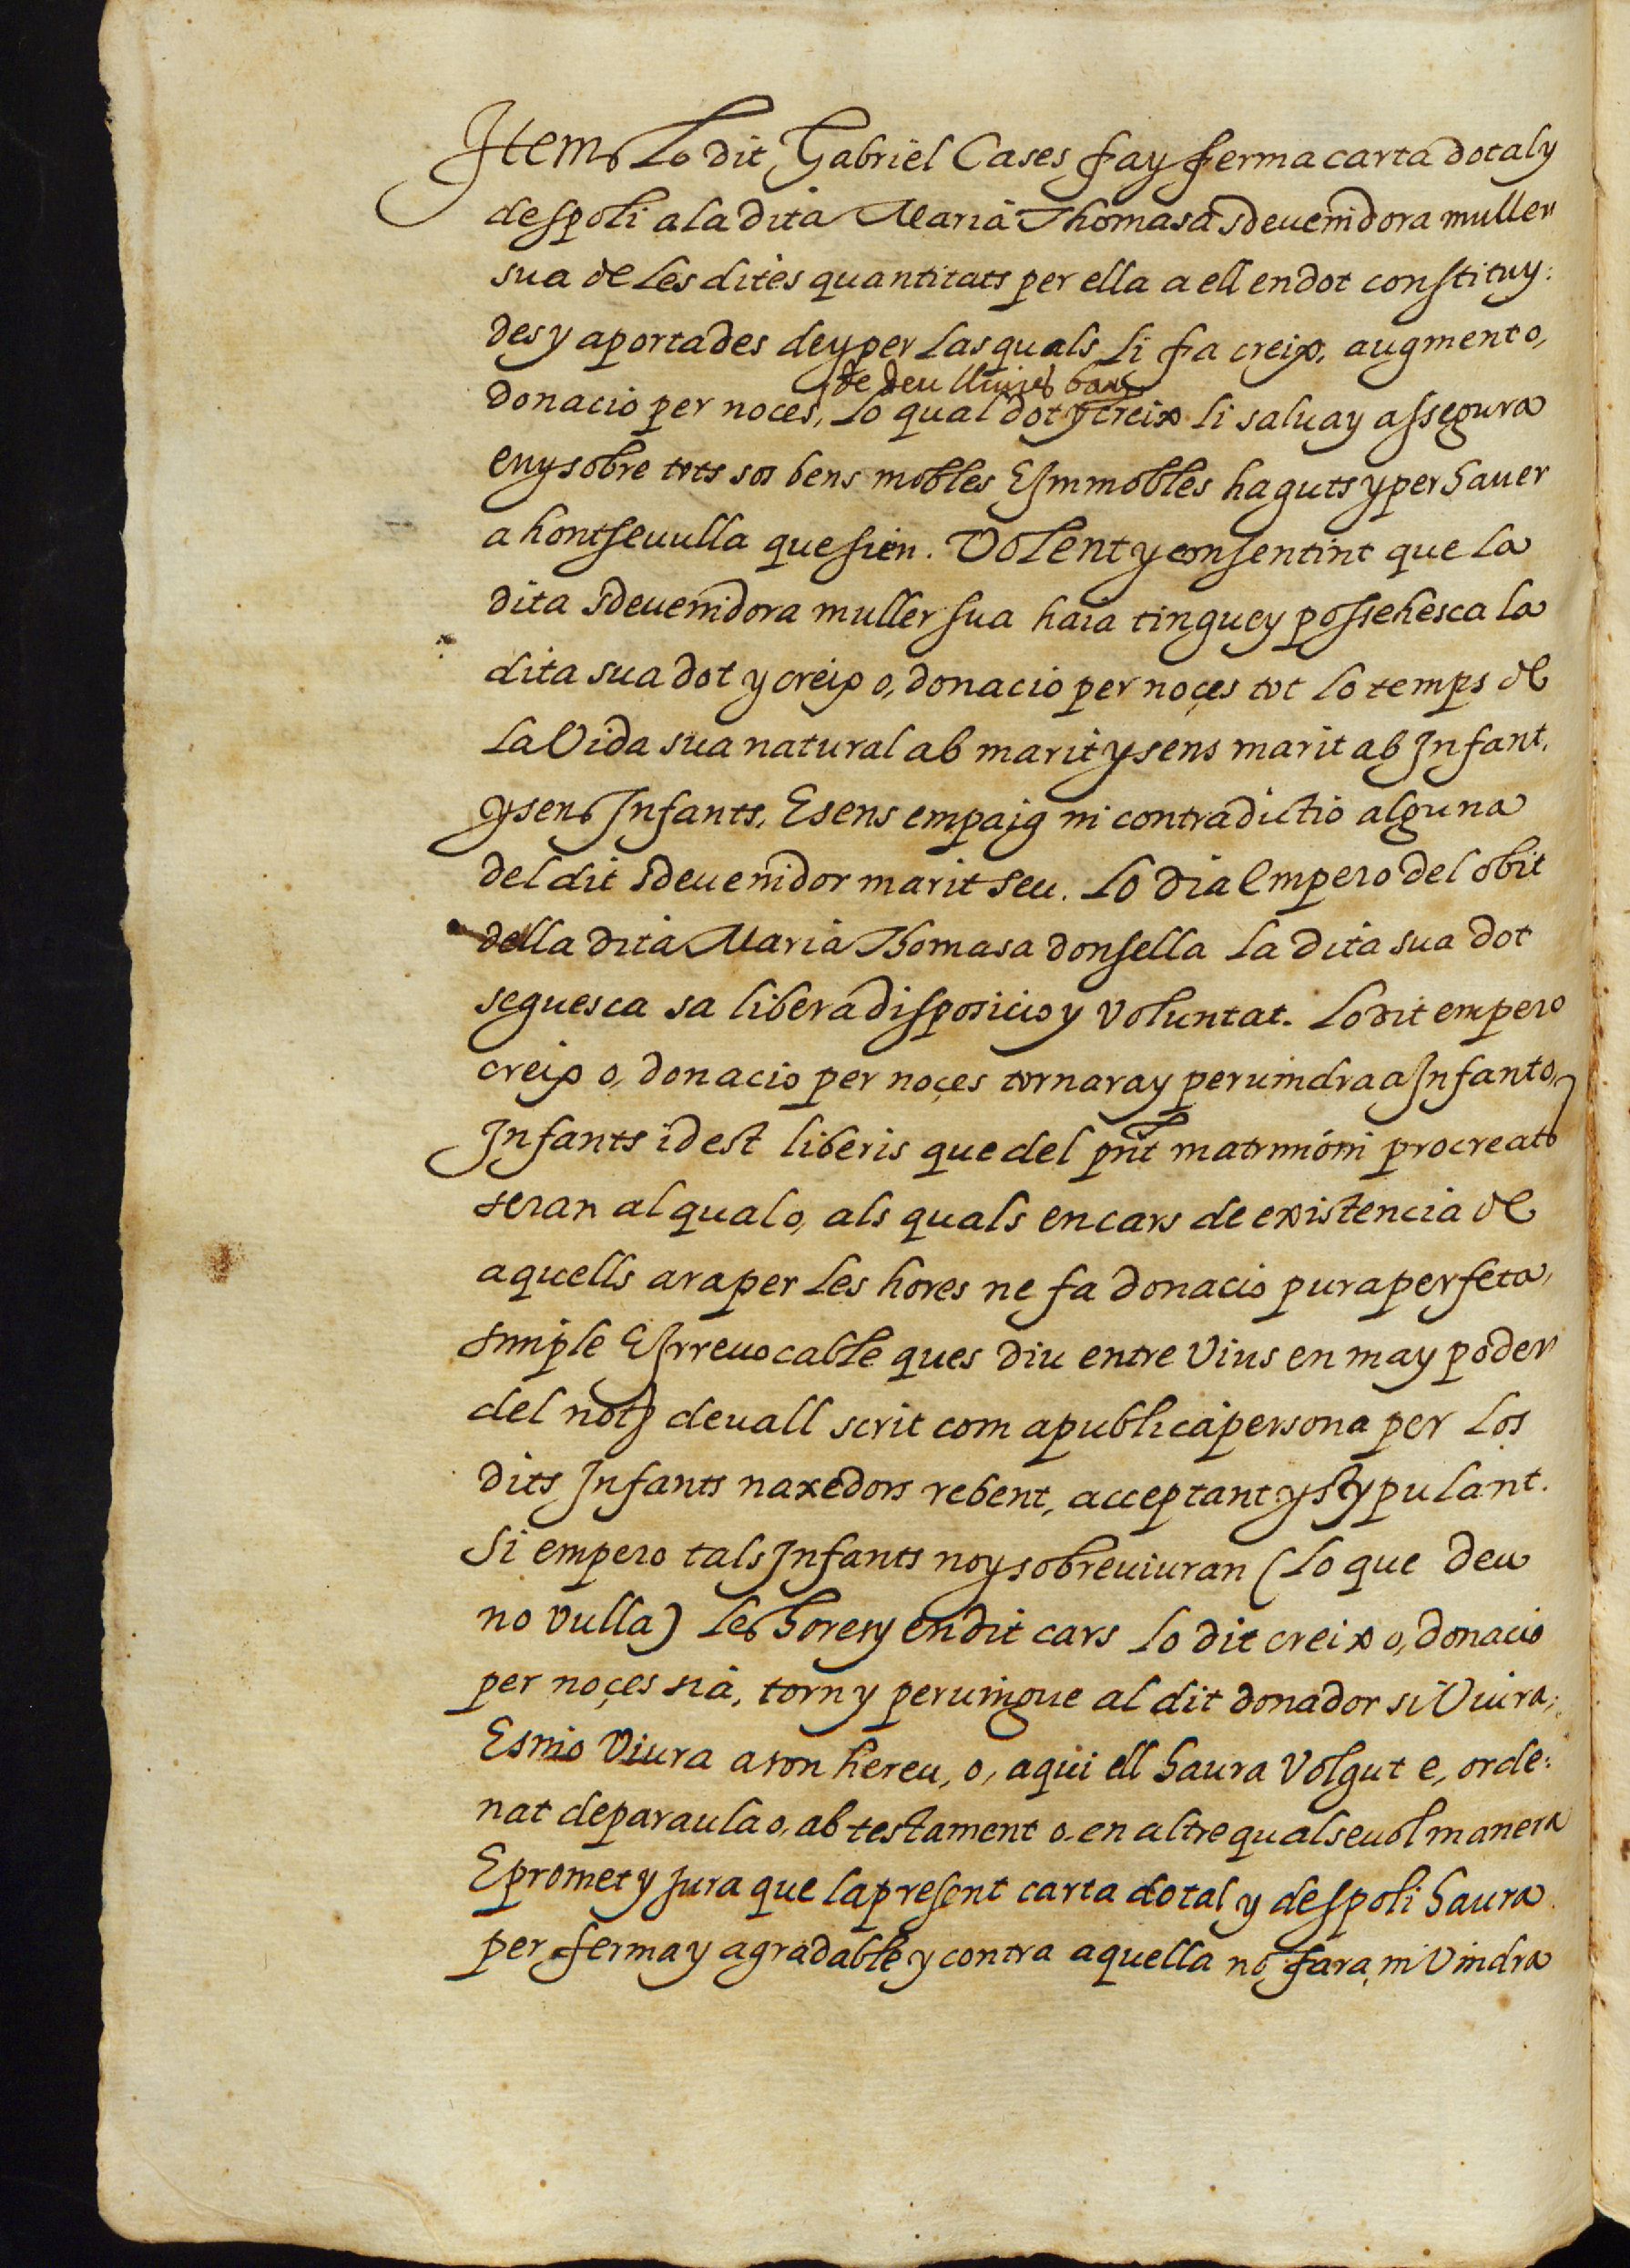 Item Lo dit Gabriel Cases fa y ferma carta dotal y
despoli a la dita Maria Thomasa sdeuenidora muller
sua de les dites quantitats per ella a ell en dot constituy:
des y aportades de y per las quals li fa creix, augment o,
de deu lliures
donacio per noces, lo qual dot y creix li salua y assegura
en y sobre tots sos bens mobles E Immobles haguts y per hauer
a hontseuulla que sien. Volent y consentint que la
dita sdeuenidora muller sua haia tingue y possehesca la
dita sua dot y creix o, donacio per noçes tot lo temps de
la Vida sua natural ab marit y sens marit ab Infant,
y sens Infants, E sens empaig ni contradictio alguna
del dit sdeuenidor marit seu. Lo dia Empero del obit
della dita Maria Thomasa donsella la dita sua dot
seguesca sa libera disposicio y voluntat. Lo dit empero
creix o, donacio per noçes tornara y peruindra a Infant o,
Infants id est liberis que del pñt matrimoni procreats
seran al qual o, als quals en cars de existencia de
aquells ara per les hores ne fa donacio pura perfeta,
simple E Irreuocable ques diu entre Vius en ma y poder
del not deuall scrit com a publica persona per los
dits Infants naxedors rebent, acceptant y stypulant.
Si empero tals Infants noy sobreuiuran (Lo que Deu
no vulla) les hores y en dit cars lo dit creix o, donacio
per noçes sia, torn y peruingue al dit donador si Viura,
E sino Viura a son hereu, o, a qui ell haura Volgut e, orde:
nat de paraula o, ab testament o, en altre qualseuol manera
E promet y jura que la present carta dotal y despoli haura
per ferma y agradable y contra aquella no fara, ni Vindra